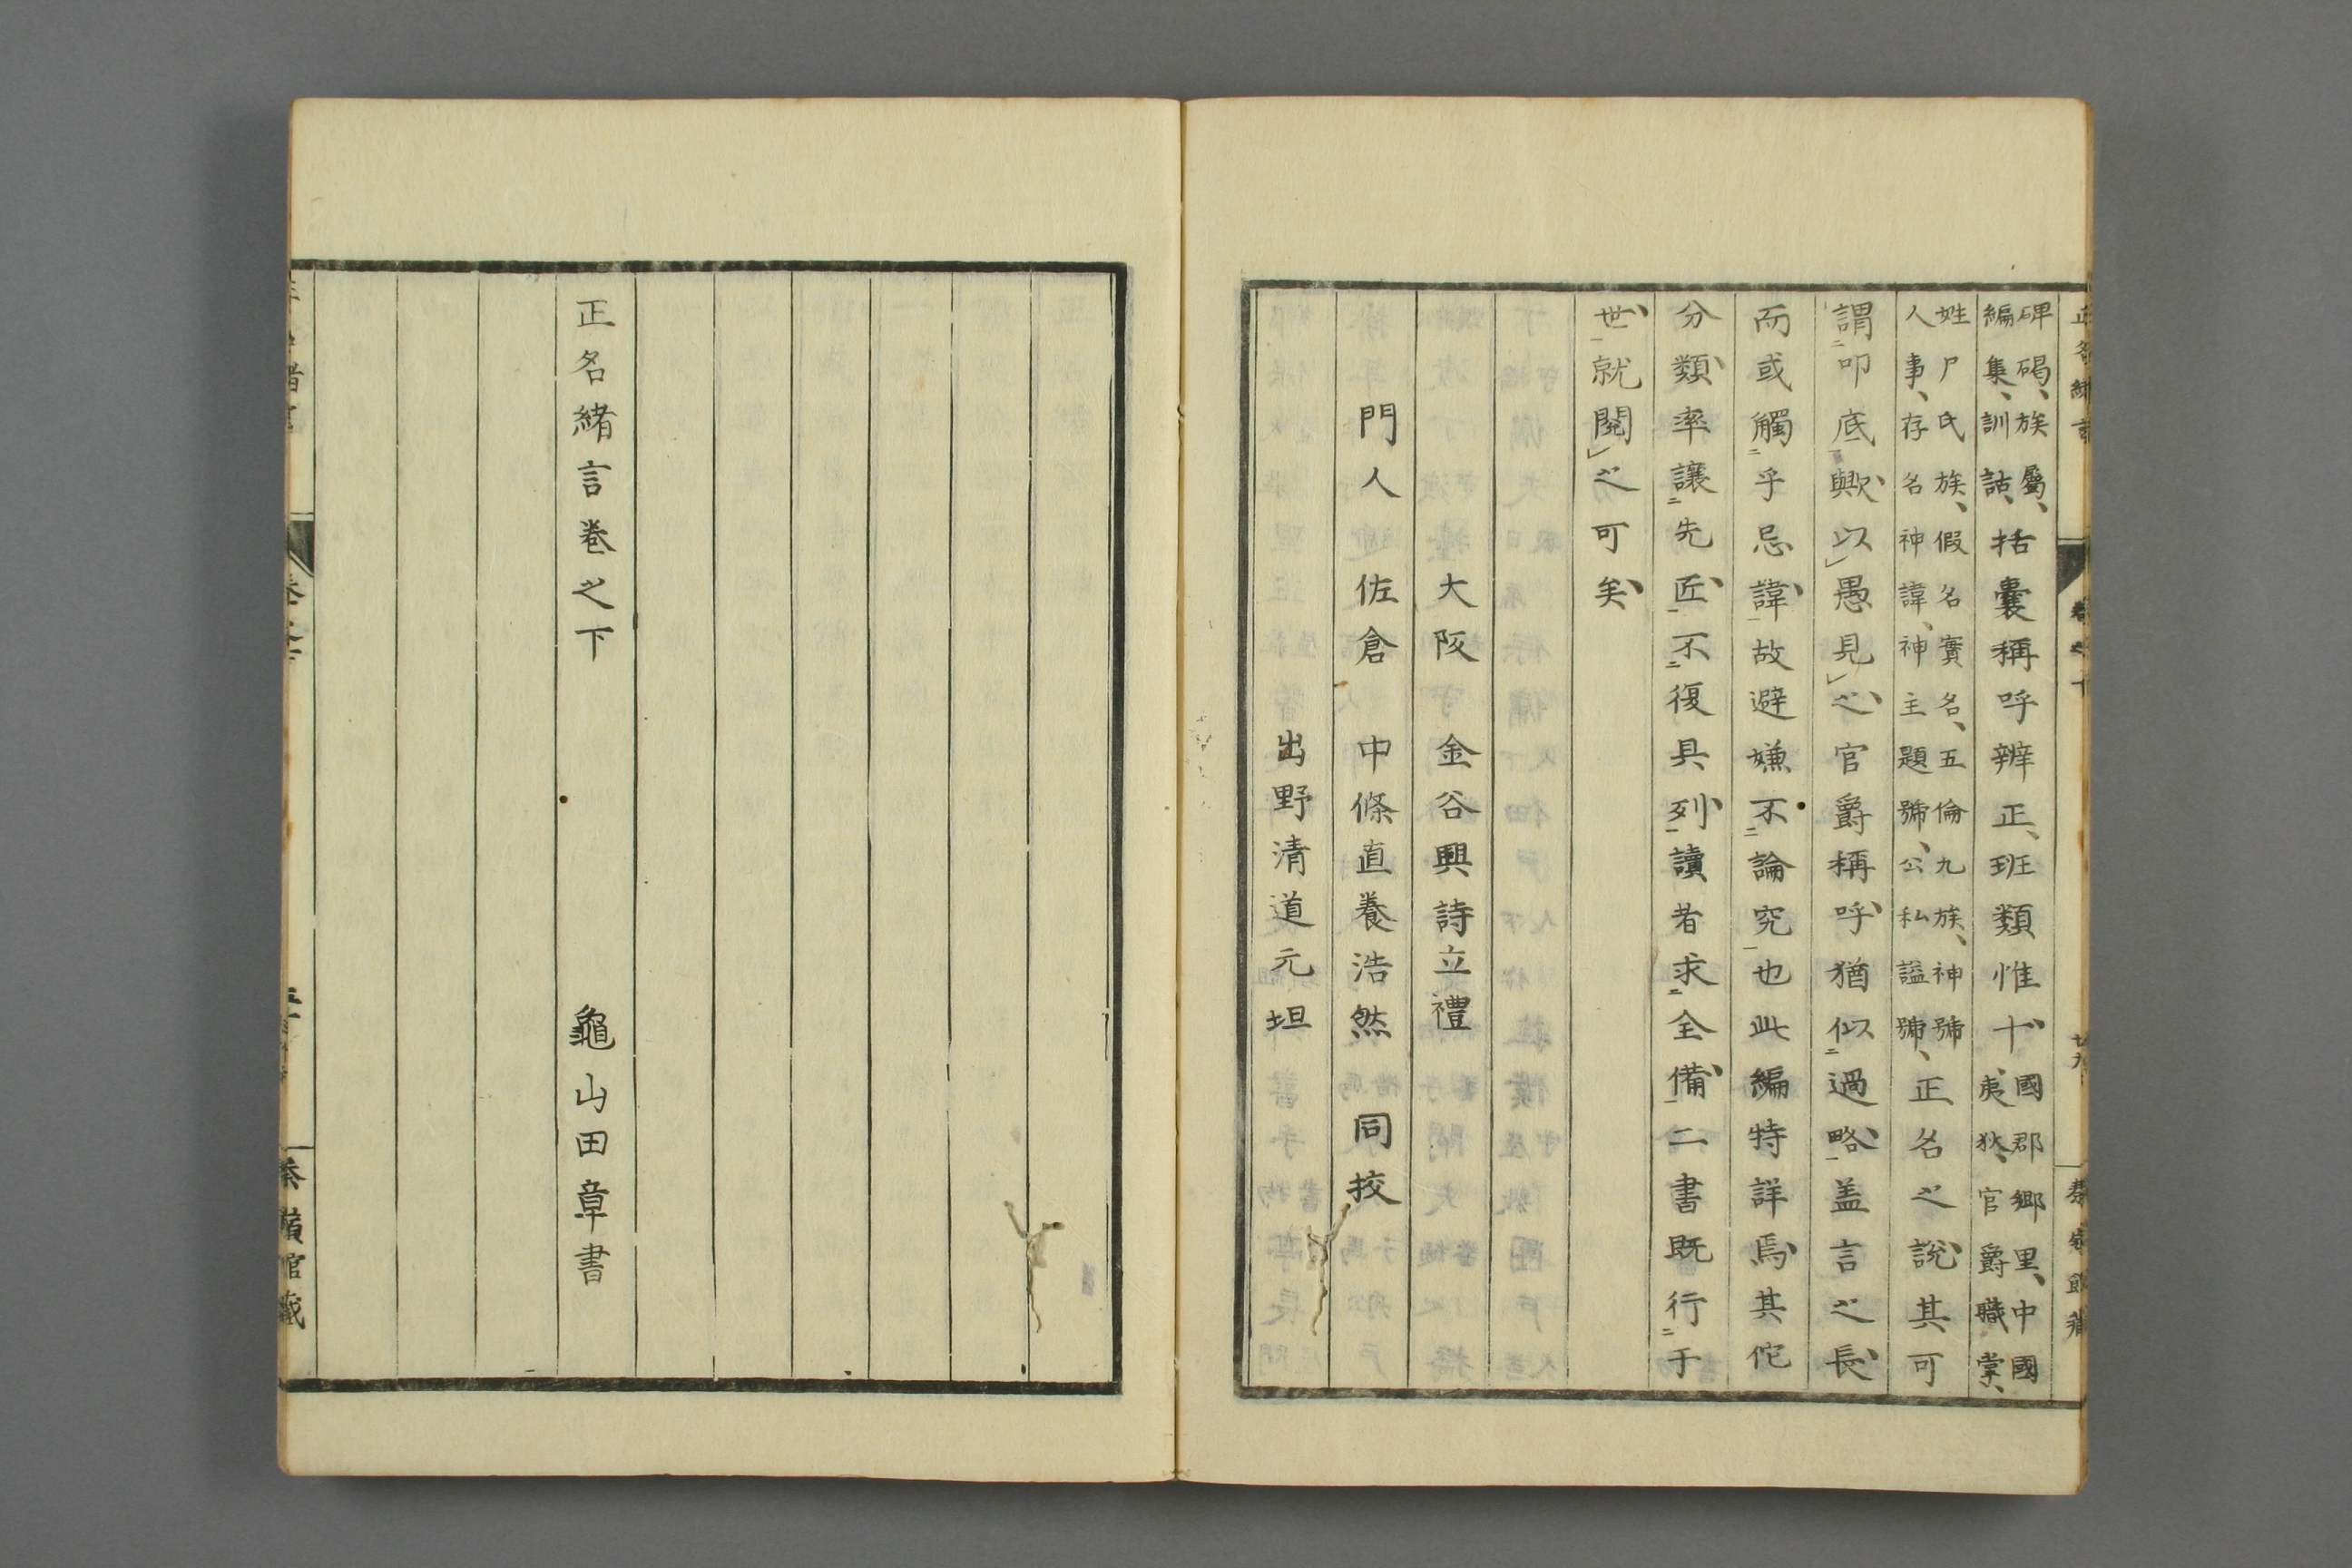 正名緒言
碑碣、族屬、
編集、訓詁、
括囊稱呼辨正、班類惟十、
國郡郷里、中國
夷狄、官爵職掌、
姓尸氏族、假名實名、五倫九族、神號
人事、存名神諱、神主題號、公私謚號、
正名之說其可
謂叩底歟以愚見之官爵稱呼猶似過略盖言之長
而或觸乎忌諱故避嫌不論究也此編特詳焉其佗
分類率讓先匠不復具列讀者求全備二書既行于
世就閱之可矣
大阪 金谷興詩立禮
門人 佐倉 中條直養浩然 同挍
出野清道元坦
正名緒言卷之下 龜山田章書